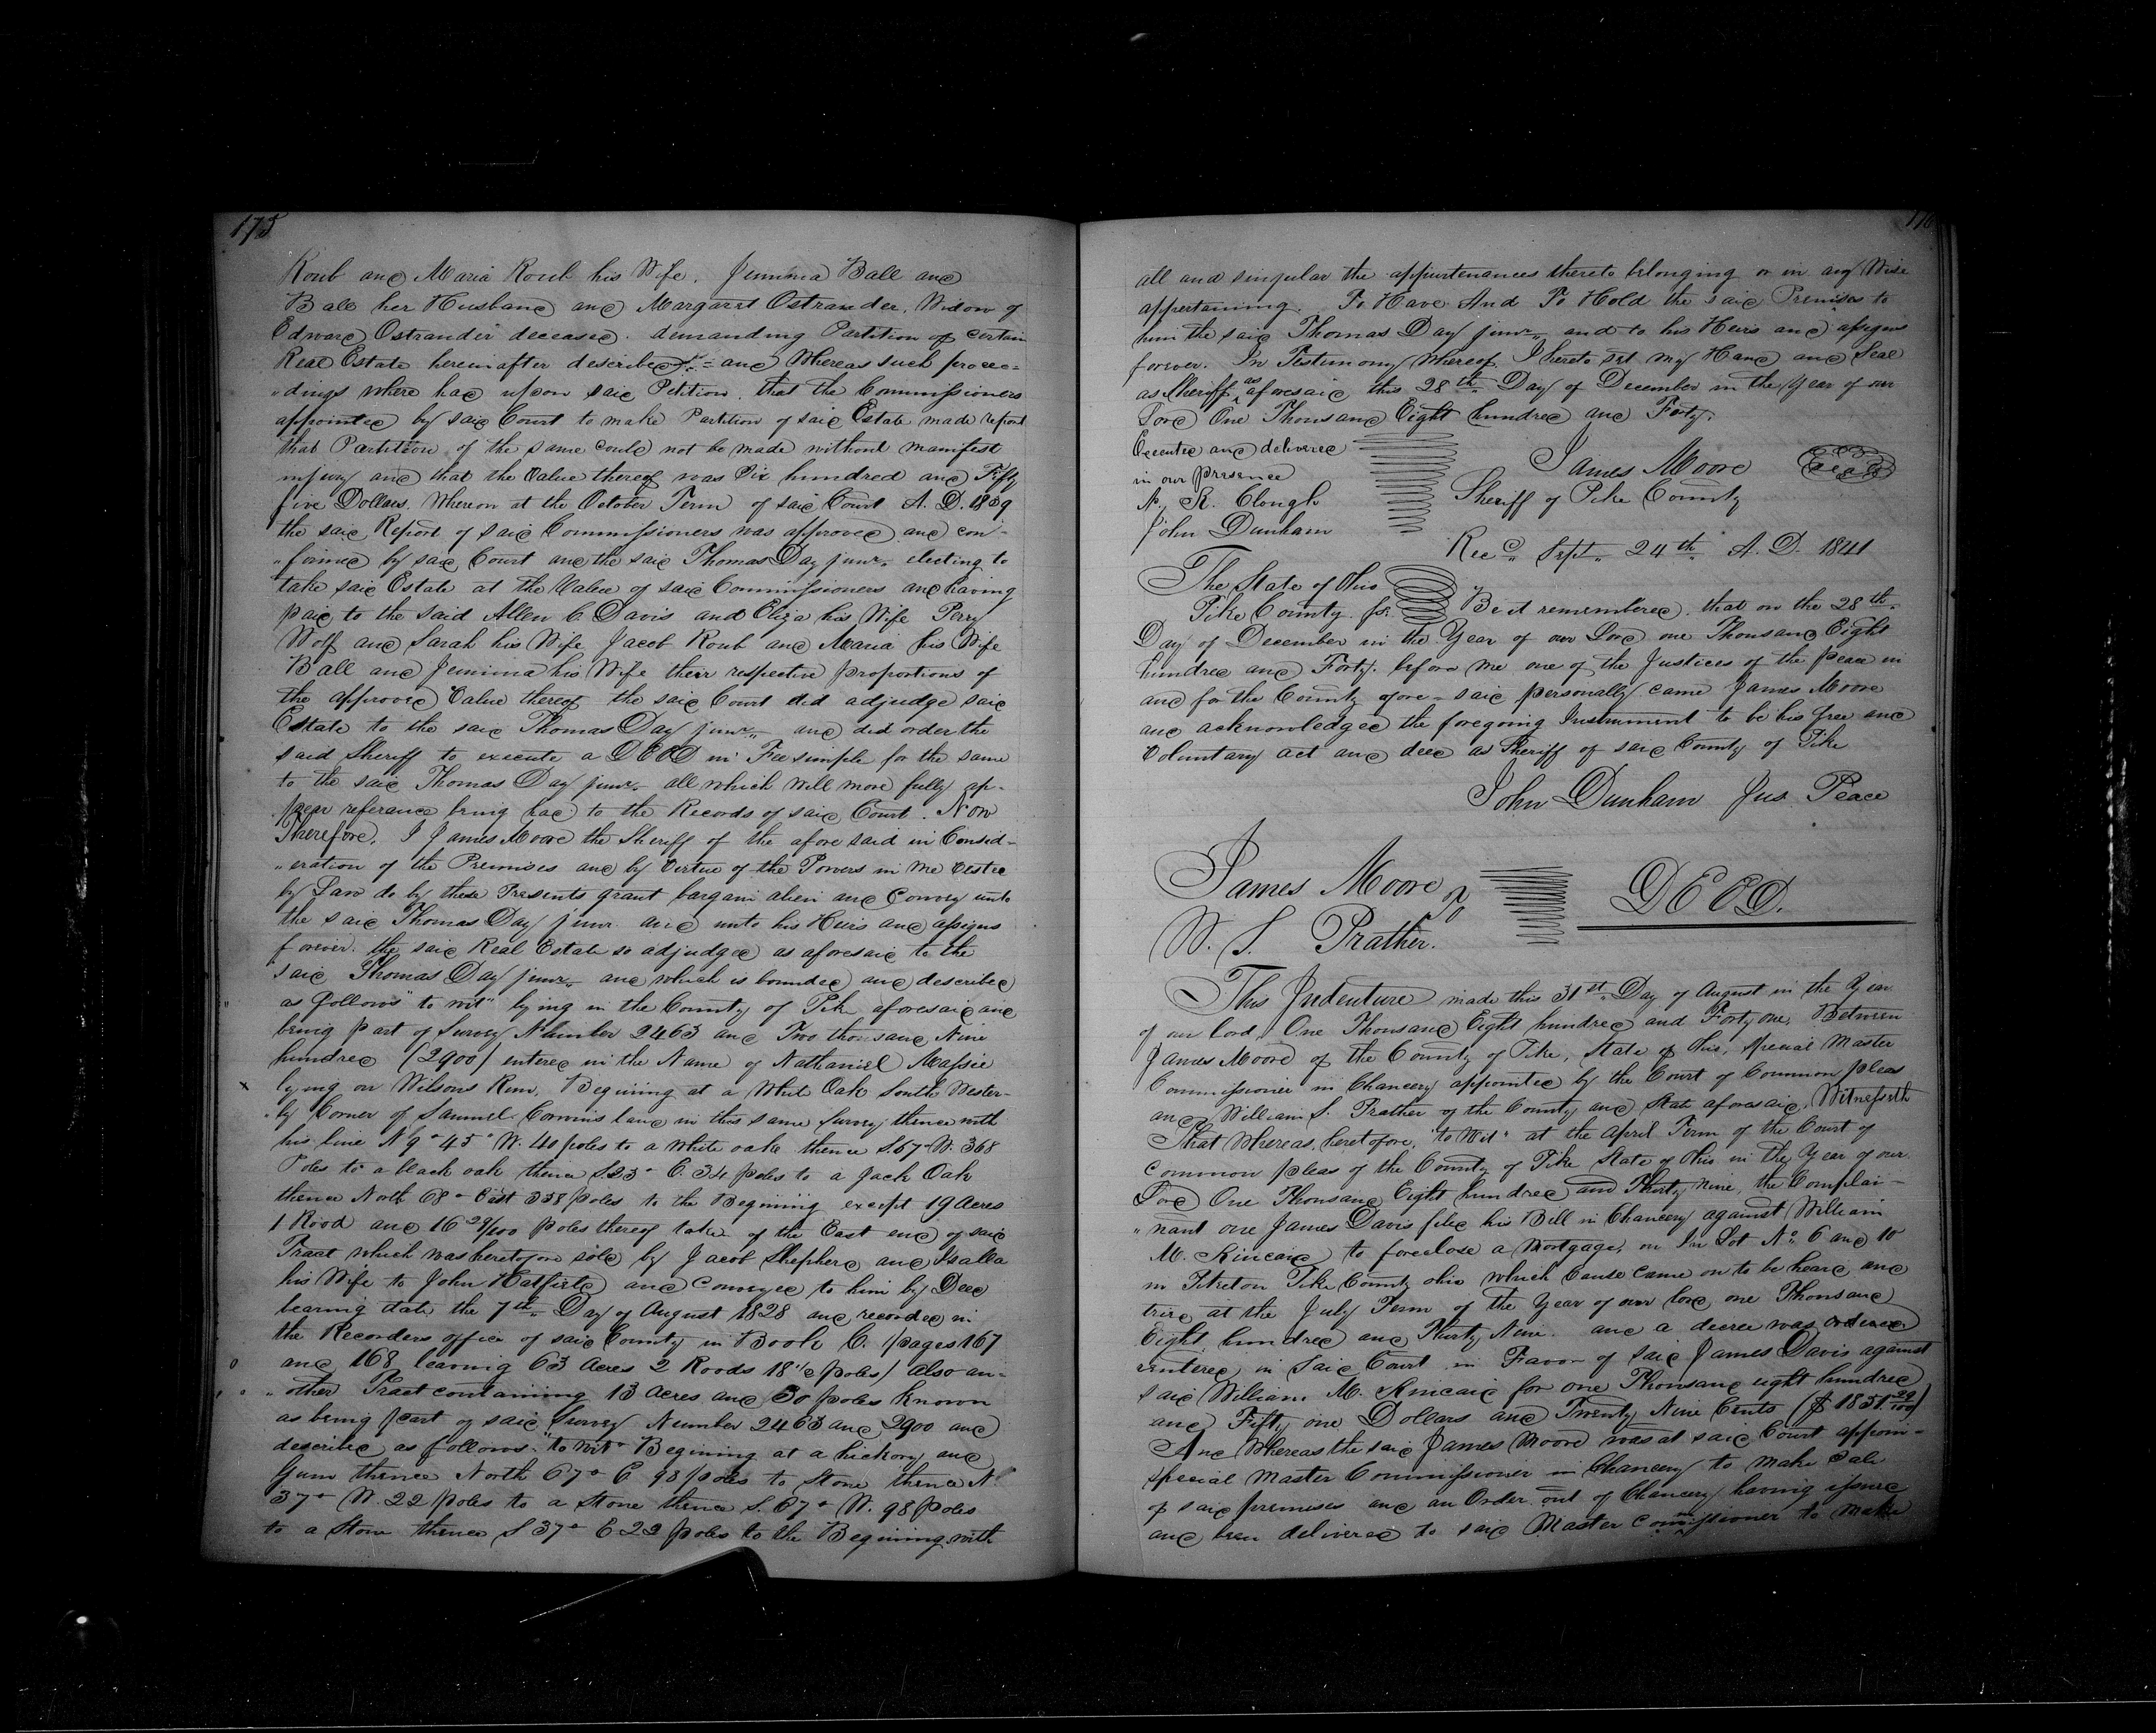 175
Roub and Maria Roub his Wife, Jemima Ball and
Ball her Husband and Margaret Ostrander, Widow of
Edward Ostrander deceased. demanding Partition of certain
Real Estate hereinafter described. = and Whereas such procee=
"dings where had upon said Petition, that the Commissioners
appointed by said Court to make Partition of said Estate made report
that Partition of the same could not be made without manifest
injury and that the Value thereof was Six hundred and Fifty
five Dollars, Whereon at the October Term of said Court A. D. 1839
the said Report of said Commissioners was approved and con-
"firmed by said Court and the said Thomas Day junr. electing to
take said Estate at the Value of said Commissioners and having
paid to the said Allen C Davis and Eliza his Wife Perry
Wolf and Sarah his Wife Jacob Roub and Maria his Wife
Ball and Jemima his Wife their respective proportions of
the approved Value thereof the said Court did adjudge said
Estate to the said Thomas Day junr. and did order the
said Sheriff to execute a DEED in Fee simple for the same
to the said Thomas Day junr. all which will more fully ap-
pear referance being had to the Records of said Court. Now
Therefore, I James Moore the Sheriff of the afore said in Consid-
"eration of the Premises and by Virtue of the Powers in me vested
by Law do by these Presents grant bargain alien and Convey unto
the said Thomas Day junr. and unto his Heirs and assigns
forever. the said Real Estate so adjudged as aforesaid to the
said Thomas Day junr. and which is bounded and described
as follows "to wit" lying in the County of Pike aforesaid and
being part of Survey Number 2463 and Two thousand Nine
hundred (2900) entered in the Name of Nathaniel Massie
lying on Wilsons Run, Begining at a White Oak South Wester-
ly Corner of Samuel Corwins land in this same Survey thence with
his line N 9° 45° W. 40 poles to a white oak thence S. 67° W. 368
Poles to a black oak thence S. 23° E. 34 poles to a Jack Oak
thence North 68° East 358 poles to the Begining except 19 Acres
1 Rood and 16 29/100 poles thereof taken of the East end of said
Tract which was heretofore sold by Jacob Shepherd and Isalla
his Wife to John Hatfield and Conveyed to him by Deed
bearing date the 7th Day of August 1828 and recorded in
the Recorders office of said County in Book C. (pages 167
and 168 leaving 63 Acres 2 Roods 18 1/2 poles) also an-
"other Tract containing 13 Acres and 30 poles known
as being part of said Survey Number 2463 and 2900 and
described as follows "to wit" Begining at a hickory and
Gum thence North 67° E 98 poles to Stone thence N.
37° W. 22 poles to a Stone thence S. 67° W. 98 poles
to a Stone thence S 37° E 22 poles to the Begining with
176
all and singular the appurtenances thereto belonging or in any Wise
appertaining. To Have And To Hold the said Premises to
him the said Thomas Day junr. and to his Heirs and assigns
forever. In Testimony Whereof I hereto set my Hand and Seal
as Sheriff as aforesaid this 28th Day of December in the Year of our
Lord One Thousand Eight hundred and Forty.
Executed and delivered
in our presence
A. R. Clough
John Dunham
James Moore Seal
Sheriff of Pike County
Recd Sept 24th A. D. 1841
The State of Ohio
Pike County ss. Be it remembered. that on the 28th
Day of December in the Year of our Lord one Thousand Eight
hundred and Forty. before me one of the Justices of the peace in
and for the County afore-said personally came James Moore
and acknowledged the foregoing Instrument to be his free and
Voluntary act and deed as Sheriff of said County of Pike
John Dunham Jus Peace
James Moore
To
W. S. Prather.
DEED.
This Indenture made this 31st Day of August in the Year
of our lord, One Thousand Eight hundred and Forty one, Between
James Moore of the County of Pike, State of Ohio, Special Master
Commissioner in Chancery appointed by the Court of Common pleas
and William S. Prather of the County and State aforesaid, Witnesseth
That Whereas, heretofore, "to Wit" at the April Term of the Court of
Common pleas of the County of Pike State of Ohio in the Year of our
Lord One Thousand Eight hundred and Thirty Nine, the Complai-
"nant one James Davis filed his Bill in Chancery against William
M. Kincaid to foreclose a Mortgage, on In Lot No. 6 and 10
in Piketon Pike County ohio which Cause came on to be heard and
tried at the July Term of the Year of our lord one Thousand
Eight hundred and Thirty Nine. and a decree was ordered
rentered in said Court in Favor of said James Davis against
said William M. Kincaid for one Thousand eight hundred
and Fifty one Dollars and Twenty Nine Cents ($ 1851. 29/100)
And Whereas the said James Moore was at said Court appoin-
special Master Commissioner in Chancery to make Sale
of said premises and an Order out of Chancery having issued
and been delivered to said Master Commissioner to make